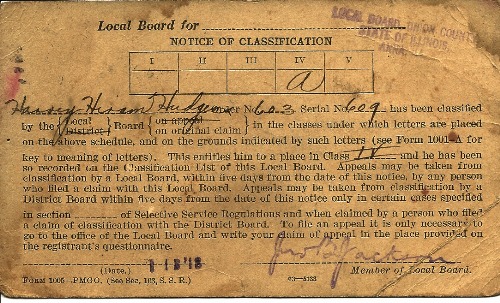 Local Board for
LOCAL BOARD, UNION COUNTY
STATE OF ILLINOIS.
ANNA,
NOTICE OF CLASSIFICATION
I II III IV V
a
Harvey Hiram Order No. 603 Serial No. 609 has been classified
by the {Local District} Board {on appeal on original claim} in the classes under which letters are placed
on the above schedule, and on the grounds indicated by such letters (see Form 1001-A for
key to meaning of letters). This entitles him to a place in Class IV and he has been
so recorded on the Classification List of this Local Board. Appeals may be taken from
classification by a Local Board, within five days from the date of this notice, by any person
who filed a claim with this Local Board. Appeals may be taken from classification by a
District Board within five days from the date of this notice only in certain cases specified
in section ........ of Selective Service Regulations and when claimed by a person who filed
a claim of classification with the District Board. To file an appeal it is only necessary to
go to the office of the Local Board and write your claim of appeal in the place provided on
the registrant's questionnaire.
(Date.) Member of Local Board.
Form 1005-PMGO. (See Sec. 103, S. S. R.)